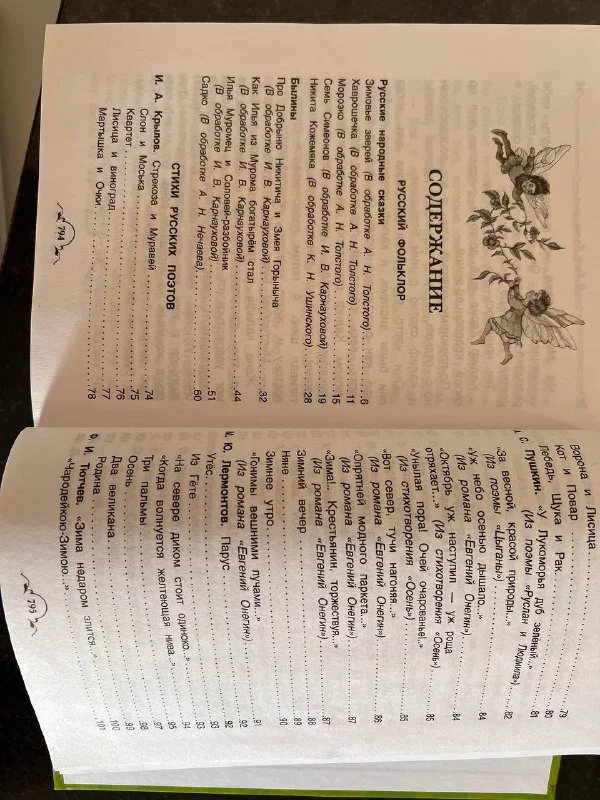 СОДЕРЖАНИЕ
РУССКИЙ ФОЛЬКЛОР
Русские народные сказки
Зимовье зверей (В обработке А. Н. Толстого) 6
Хаврошечка (В обработке А. Н. Толстого) 11
Морозко (В обработке А. Н. Толстого) 15
Семь Симеонов (В обработке И. В. Карнауховой) 19
Никита Кожемяка (В обработке К. Н. Ушинского) 28
Былины
Про Добрыню Никитича и Змея Горыныча
(В обработке И. В. Карнауховой) 32
Как Илья из Мурома богатырём стал
(В обработке И. В. Карнауховой) 44
Илья Муромец и Соловей-разбойник
(В обработке И. В. Карнауховой) 51
Садко (В обработке А. Н. Нечаева) 60
СТИХИ РУССКИХ ПОЭТОВ
И. А. Крылов. Стрекоза и Муравей 74
Слон и Моська 75
Квартет 76
Лисица и виноград 77
Мартышка и Очки 78
794
Ворона и Лисица 79
Кот и Повар 80
Лебедь, Щука и Рак 81
С. Пушкин. «У Лукоморья дуб зелёный...»
(Из поэмы «Руслан и Людмила») 82
«За весной, красой природы...»
(Из поэмы «Цыганы») 84
«Уж небо осенью дышало...»
(Из романа «Евгений Онегин») 84
«Октябрь уж наступил — уж роща
отряхает...» (Из стихотворения «Осень») 85
«Унылая пора! Очей очарованье!..»
(Из стихотворения «Осень») 85
«Вот север, тучи нагоняя...»
(Из романа «Евгений Онегин») 86
«Опрятней модного паркета...»
(Из романа «Евгений Онегин») 87
«Зима!.. Крестьянин, торжествуя...»
(Из романа «Евгений Онегин») 87
Зимний вечер 88
Няне 89
Зимнее утро 90
«Гонимы вешними лучами...»
(Из романа «Евгений Онегин») 91
Ю. Лермонтов. Парус 92
Утёс 92
Из Гёте 93
«На севере диком стоит одиноко...» 93
«Когда волнуется желтеющая нива...» 94
Три пальмы 95
Осень 97
Два великана 98
Родина 99
И. Тютчев. «Зима недаром злится...» 100
«Чародейкою-Зимою...» 101
795